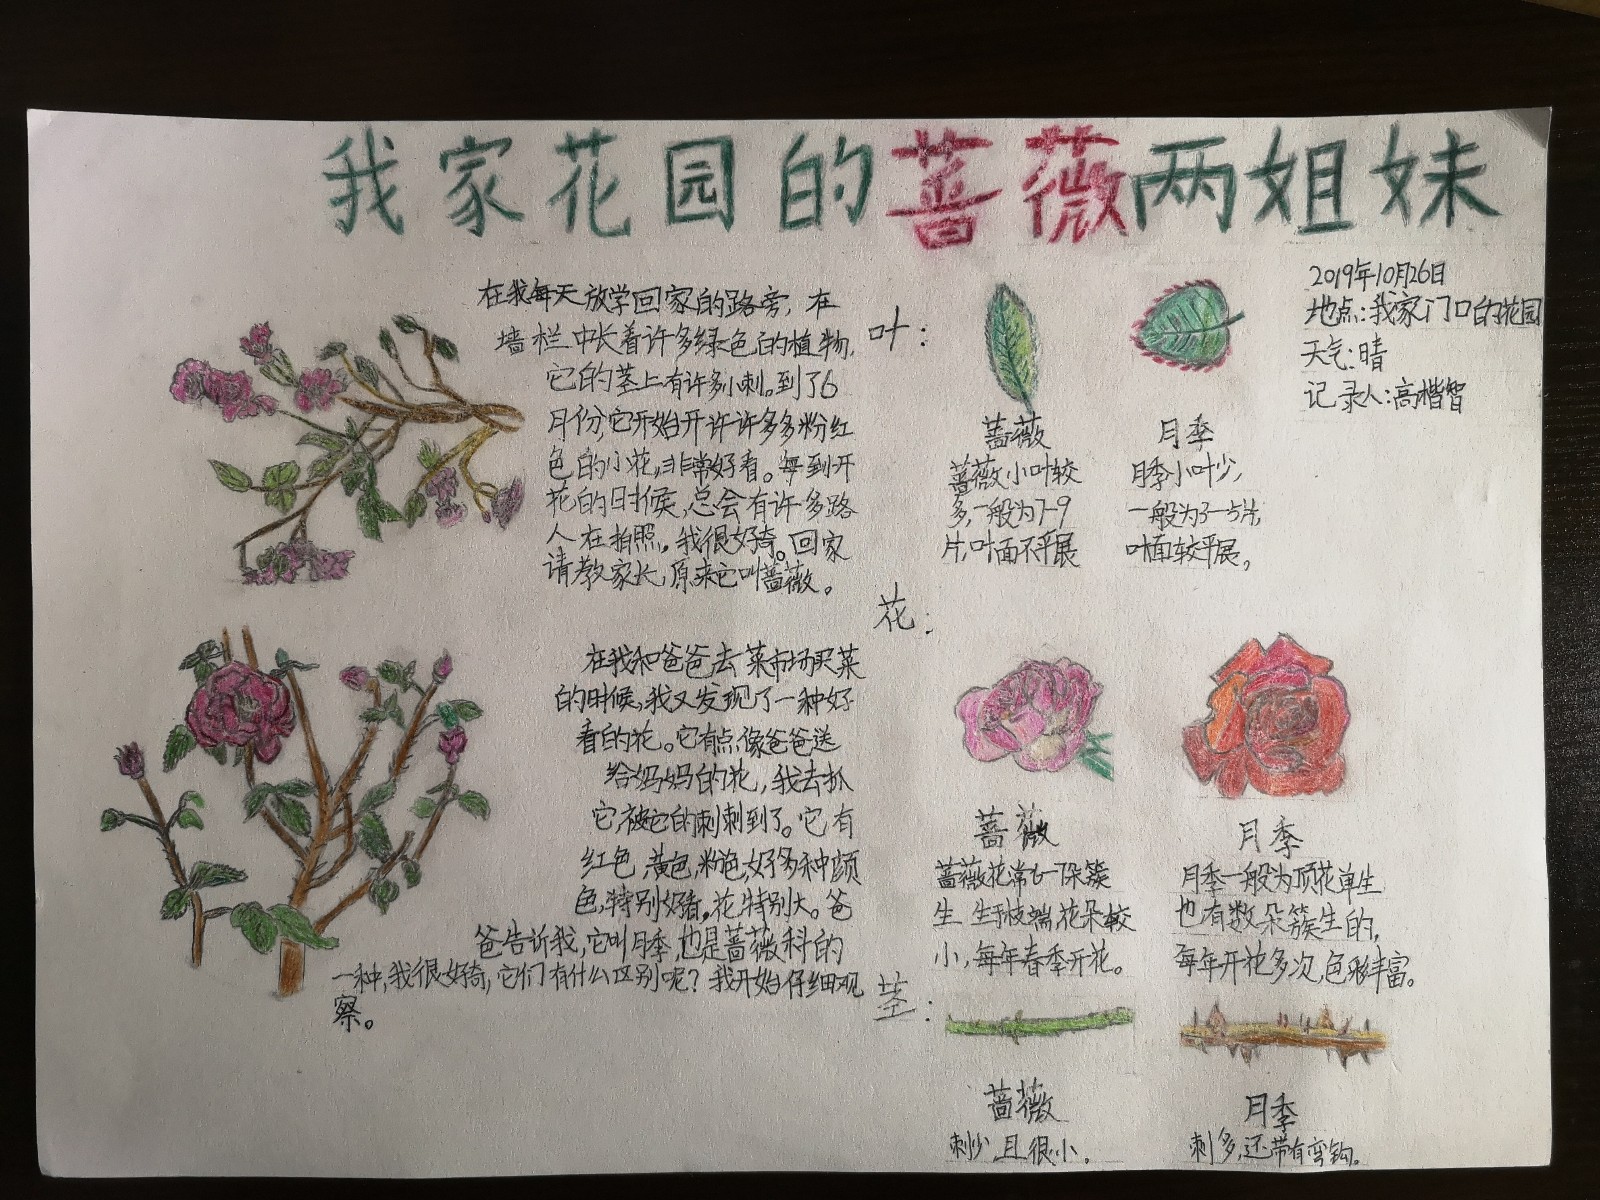 我家花园的蔷薇两姐妹
2019年10月26日
地点:我家门口的花园
天气:晴
记录人:高楷智
在我每天放学回家的路旁,在
墙栏中长着许多绿色的植物,
它的茎上有许多小刺。到了6
月份,它开始开许许多多粉红
色的小花,非常好看。每到开
花的时候,总会有许多路
人在拍照,我很好奇。回家
请教家长,原来它叫蔷薇。
在我和爸爸去菜市场买菜
的时候,我又发现了一种好
看的花。它有点像爸爸送
给妈妈的花,我去抓
它,被它的刺刺到了。它有
红色,黄色,粉色,好多种颜
色,特别好看,花特别大。爸
爸告诉我,它叫月季,也是蔷薇科的
一种,我很好奇,它们有什么区别呢?我开始仔细观
察。
叶:
蔷薇
蔷薇小叶较
多,一般为7-9
片,叶面不平展
月季
月季小叶少,
一般为3-5片,
叶面较平展。
花:
蔷薇
蔷薇花常6-7朵簇
生,生于枝端,花朵较
小,每年春季开花。
月季
月季一般为顶花单生
也有数朵簇生的,
每年开花多次,色彩丰富。
茎:
蔷薇
刺少,且很小。
月季
刺多,还带有弯钩。